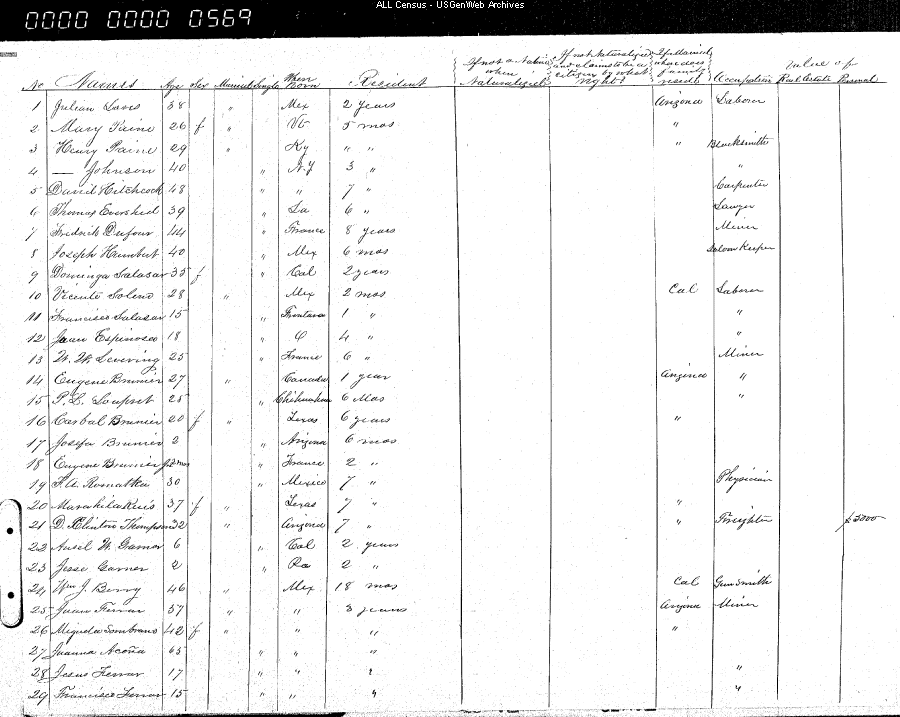 ALL Census - USGenWeb Archives
0000 0000 0569
No Names Age Sex Married Single When Born Resident If not a Native when Naturalized If not Naturalized and claims to be a citizen by what Right If Married where does family reside Occupation Value of Real Estate Personal
1 Julian Luis 38 " Mex 2 years Arizona Laborer
2 Mary Paine 26 f " Vt 5 mos "
3 Henry Paine 29 " Ky " " " Blacksmith
4 — Johnson 40 " N.Y 3 " "
5 David Hitchcock 48 " " 7 " Carpenter
6 Thomas Evershed 39 " La 6 " Lawyer
7 Fredrick Dufour 44 " France 8 years Miner
8 Joseph Humbert 40 " Mex 6 mos Saloon Keeper
9 Dominga Salasar 35 f " Cal 2 years
10 Vicente Soleno 28 " Mex 2 mos Cal Laborer
11 Francisco Salasar 15 " 1 " "
12 Juan Espinosa 18 " 4 " "
13 W. W. Levering 25 " France 6 " Miner
14 Eugene Brunier 27 " Canada 1 year Arizona "
15 P. L. 25 " Chihuahua 6 Mos "
16 Brunier 20 f " Texas 6 years "
17 Josefa Brunier 2 " Arizona 6 mos
18 Eugene Brunier " France 2 "
19 F. A. Romatka 30 " Mexico 7 " Physician
20 37 f " Texas 7 " "
21 D. Clinton Thompson 32 " Arizona 7 " " Freighter $5000
22 Ansel W. Garner 6 " Cal 2 years
23 Jesse Garner 2 " Pa 2 "
24 Wm J. Berry 46 " Mex 18 mos Cal Gun Smith
25 Juan Ferrar 57 " " 3 years Arizona Miner
26 Miguela Sombrano 42 f " " " "
27 Juanna Acoña 65 " " "
28 Jesus Ferrar 17 " " " "
29 Francisco Ferrar 15 " " " "